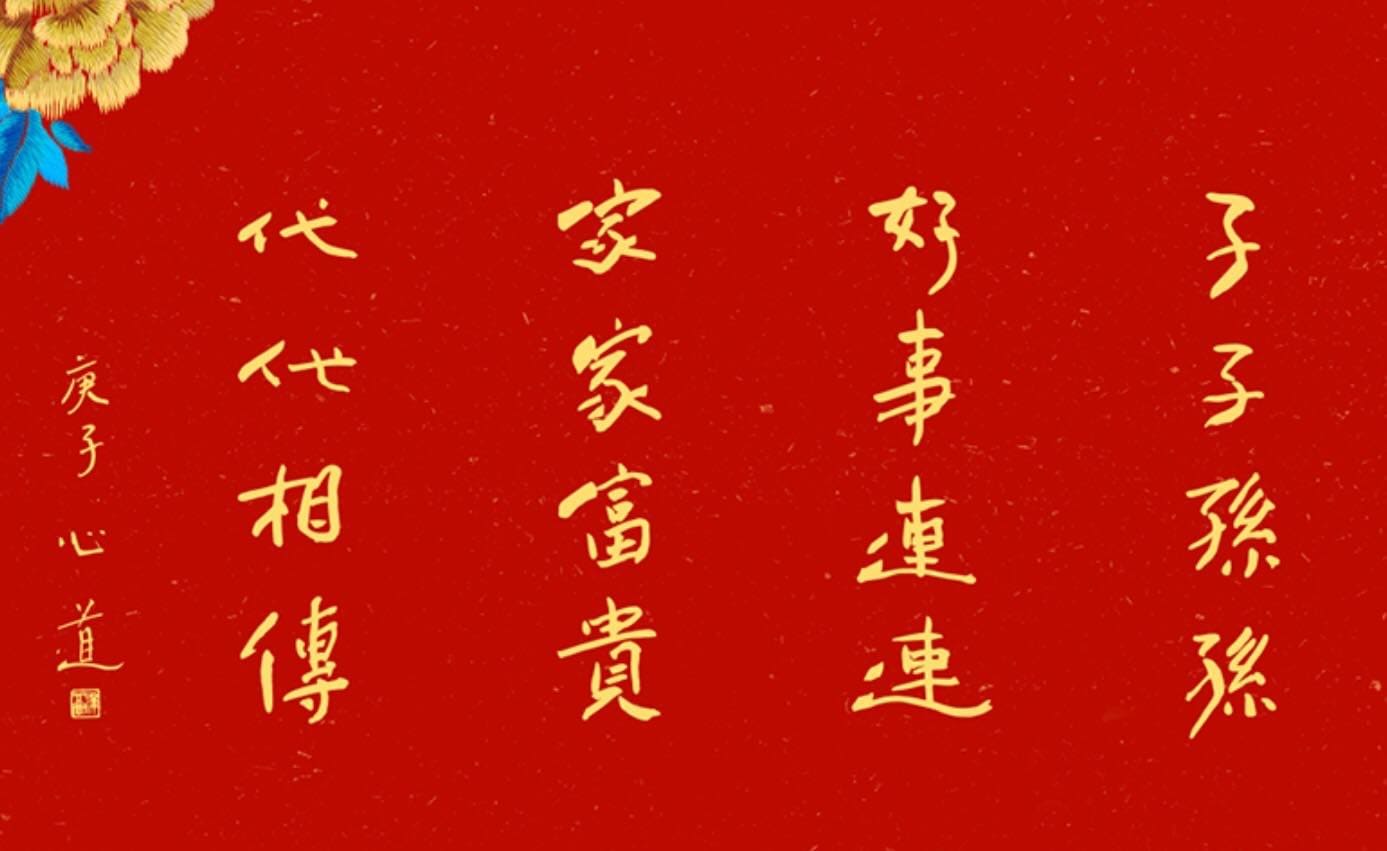 子子孫孫
好事連連
家家富貴
代代相傳
庚子 心道